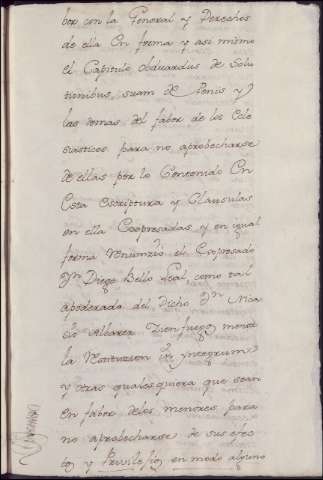 bor con la General y Derechos
de ella En forma y asi mismo
el Capitulo obduardus de Solu
tionibus, suam de Penis y
las demas del fabor de los Ecle
siasticos para no aprobecharse
de ellas por lo Contenido En
Esta Escriptura y Clausulas
en ella Expresadas, y en igual
forma renunzió el Expresado
Dn Diego Bello Leal como tal
apoderado del Dicho Dn Nico
las Albarez Zienfuegos menor
la Restituzion In Yntegrum
y otras qualesquiera que sean
En fabor delos menores para
no aprobecharse de sus efec
tos y Privilejios en modo alguno